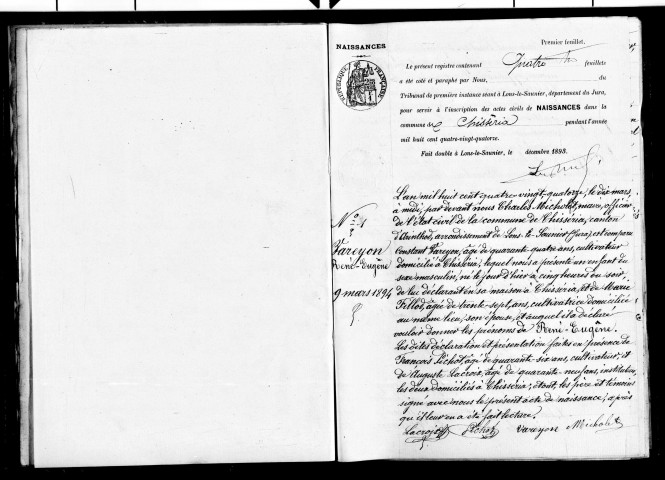 Premier feuillet.
NAISSANCES
Le présent registre contenant Quatre feuillets
a été coté et paraphé par Nous, du
Tribunal de première instance séant à Lons-le-Saunier, département du Jura,
pour servir à l'inscription des actes civils de NAISSANCES dans la
commune de Chisséria pendant l'année
mil huit cent quatre-vingt-quatorze.
Fait double à Lons-le-Saunier, le décembre 1893.
RÉPUBLIQUE FRANÇAISE
No 1
Vareyon
René-Eugène
9 mars 1894
L'an mil huit cent quatre-vingt-quatorze, le dix mars
à midi, par devant nous Charles Micholet, maire, officier
de l'état civil de la commune de Chisséria, canton
d'Arinthod, arrondissement de Lons-le-Saunier (Jura), est comparu
Constant Vareyon, âgé de quarante-quatre ans, cultivateur
domicilié à Chisséria, lequel nous a présenté un enfant du
sexe masculin, né le jour d'hier à cinq heures du soir,
de lui déclarant en sa maison à Chisséria, et de Marie
Fillot, âgée de trente-sept ans, cultivatrice domiciliée
au même lieu, son épouse, et auquel il a déclaré
vouloir donner les prénoms de René-Eugène.
Les dites déclaration et présentation faites en présence de
François Pichot, âgé de quarante-six ans, cultivateur, et
de Auguste Lacroix, âgé de quarante-neuf ans, instituteur,
les deux domiciliés à Chisséria; étant, les père et témoins
signé avec nous le présent acte de naissance, après
qu'il leur en a été fait lecture.
Lacroix Pichot Vareyon Micholet